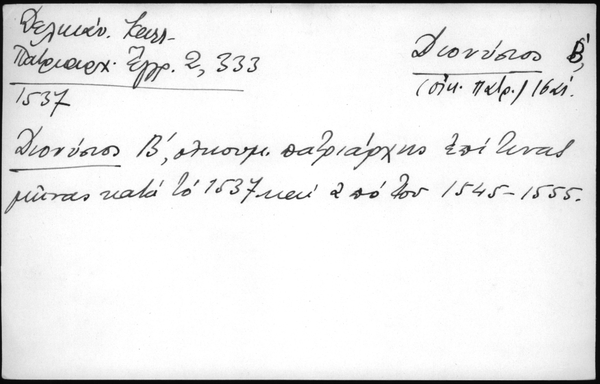 Δελικάν. Καλλ.
Πατριαρχ. Ἔγγρ. 2, 333
1537
Διονύσιος Β΄,
(οἰκ. Πατρ.) 16
Διονύσιος Β΄, οἰκουμ. πατριάρχης ἐπί τινας
μῆνας κατά τό 1537 καί ἀπό τοῦ 1545-1555.